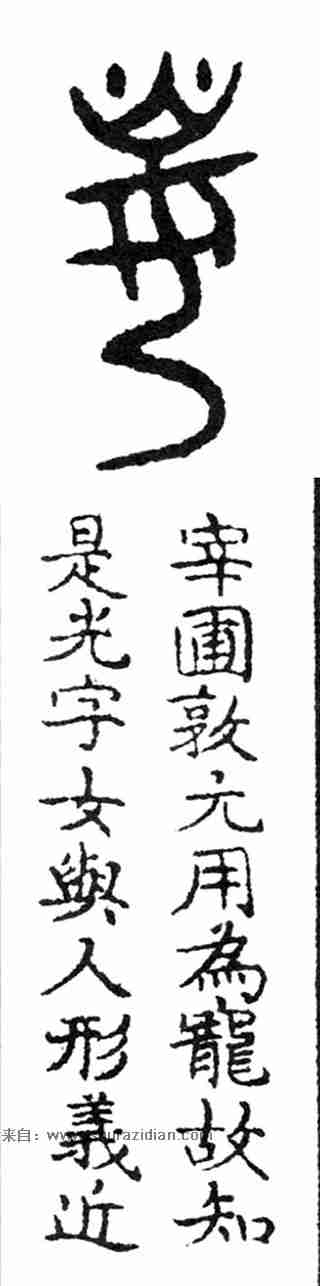 宰圃敦元用為寵故知
是光字女與人形義近
来自：www.shufazidian.com